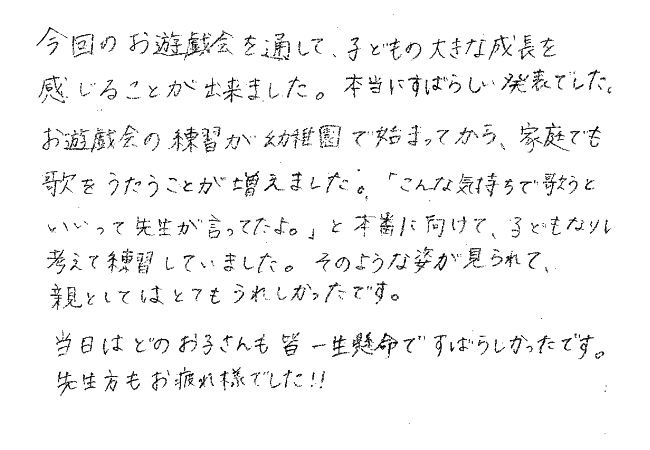 今回のお遊戯会を通して、子どもの大きな成長を
感じることが出来ました。本当にすばらしい発表でした。
お遊戯会の練習が幼稚園で始まってから、家庭でも
歌をうたうことが増えました。「こんな気持ちで歌うと
いいって先生が言ってたよ。」と本番に向けて、子どもなりに
考えて練習していました。そのような姿が見られて、
親としてはとてもうれしかったです。
当日はどのお子さんも皆一生懸命ですばらしかったです。
先生方もお疲れ様でした!!